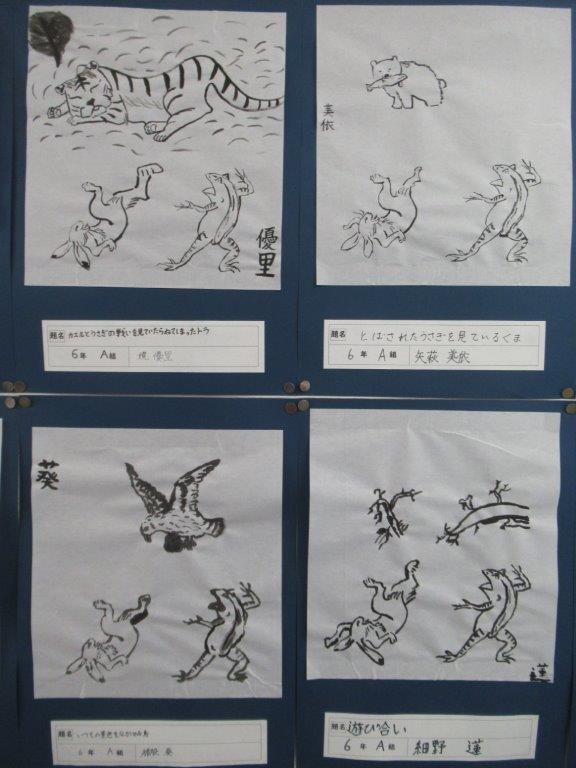 優里
題名 カエルとうさぎの戦いを見ていたらねてしまったトラ
6年 A組 優里
美依
題名 とばされたうさぎを見ているくま
6年 A組 矢萩 美依
葵
題名 いつもの景色をながめる鳥
6年 A組 葵
蓮
題名 遊び合い
6年 A組 細野 蓮